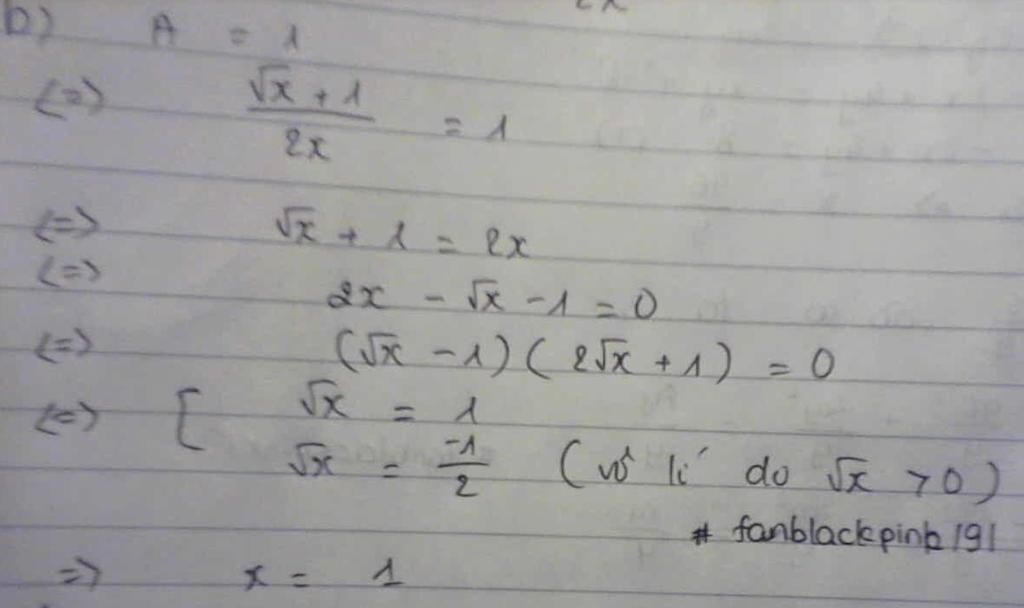 b) A = 1
<=> (√x + 1)/(2x) = 1
<=> √x + 1 = 2x
<=> 2x - √x - 1 = 0
<=> (√x - 1)(2√x + 1) = 0
<=> [ √x = 1
√x = -1/2 (vô lí do √x > 0)
# fanblackpink 191
=> x = 1